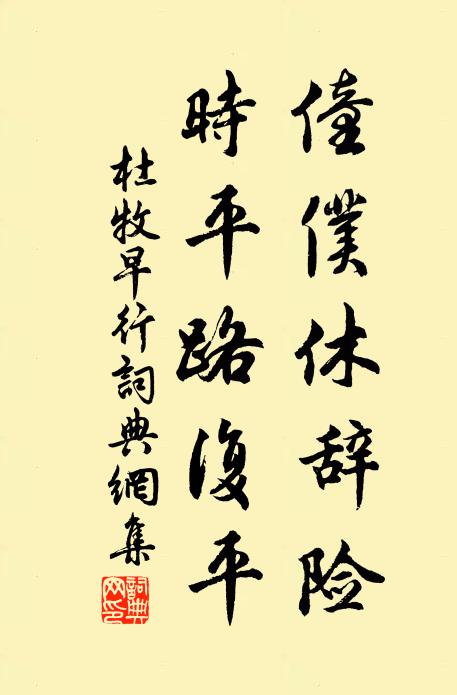 僮僕休辞险
時平路復平
杜牧早行詞典網集
詞典網印